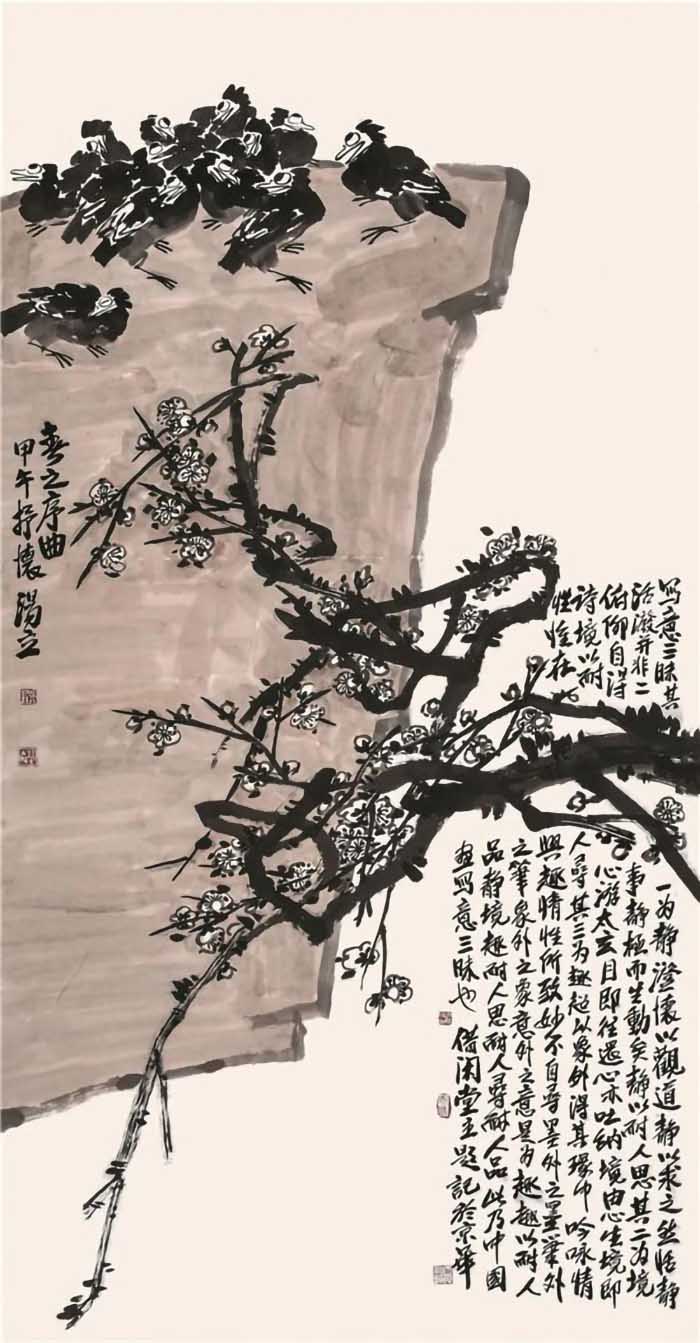 寫意三昧其一为静澄懷以觀道静以求之然恬静
活潑并非二事静極而生動矣静以耐人思其二为境
俯仰自得心游太玄目即往還心亦吐纳境由心生境即
诗境以耐人尋其三为趣超以象外得其環中吟咏情
性惟在興趣情性所致妙不自尋墨外之墨筆外
之筆象外之象意外之意是为趣趣以耐人
品静境趣耐人思耐人尋耐人品此乃中國
画寫意三昧也 借闲堂主題記於京華
春之序曲
甲午抒懷 湯立